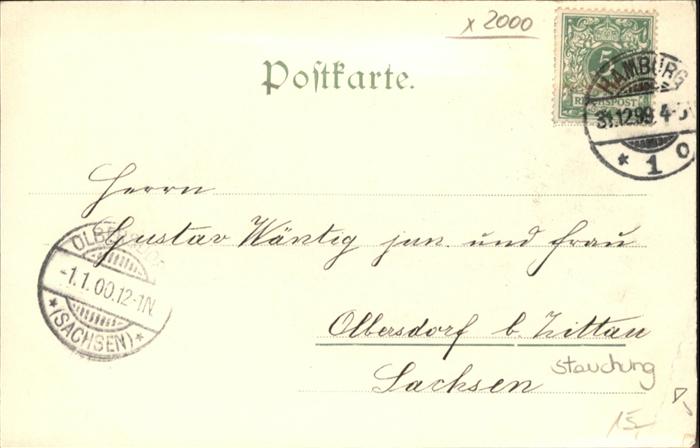 x 2000
5
REICHSPOST
HAMBURG
31.12.99. 4-5
* 1 o
Postkarte.
Herrn
Gustav Wäntig jun. und Frau
OLBERSDORF
-1.1.00.12-1N.
*(SACHSEN)*
Olbersdorf b. Zittau
Stauchung
Sachsen
15,-